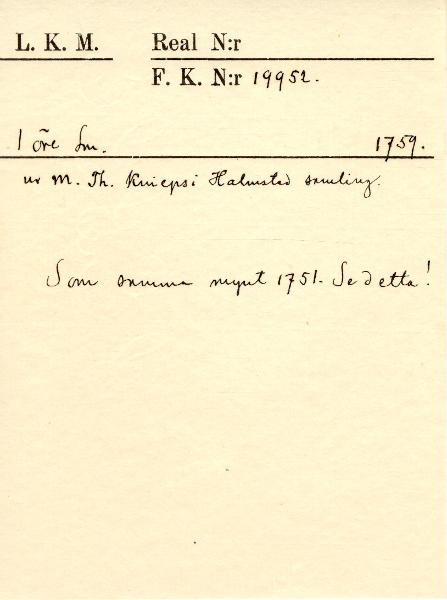 L. K. M. Real N:r
F. K. N:r 19952.
1 öre Sm. 1759.
ur M. Th. Kniepsi Halmstad samling.
Som samma mynt 1751. Se detta!